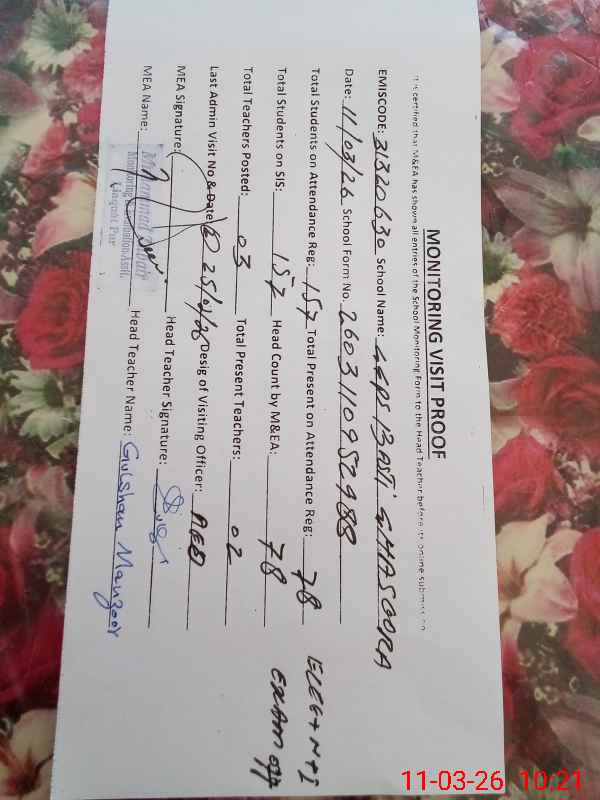 MONITORING VISIT PROOF
It is certified that M&EA has shown all entries of the School Monitoring Form to the Head Teacher before its online submission
EMISCODE: 31320630 School Name: GGPS BASTI GHASOORA
Date: 11/03/26 School Form No. 2603110952988
Total Students on Attendance Reg: 157 Total Present on Attendance Reg: 78
Total Students on SIS: 157 Head Count by M&EA: 78
Total Teachers Posted: 03 Total Present Teachers: 02
Last Admin Visit No & Date: 25/01/26 Desig of Visiting Officer: AEO
MEA Signature: Head Teacher Signature:
MEA Name: Head Teacher Name: Gulshan Manzoor
Muhammad
Liaquat Pur
EXAM off
11-03-26 10:21